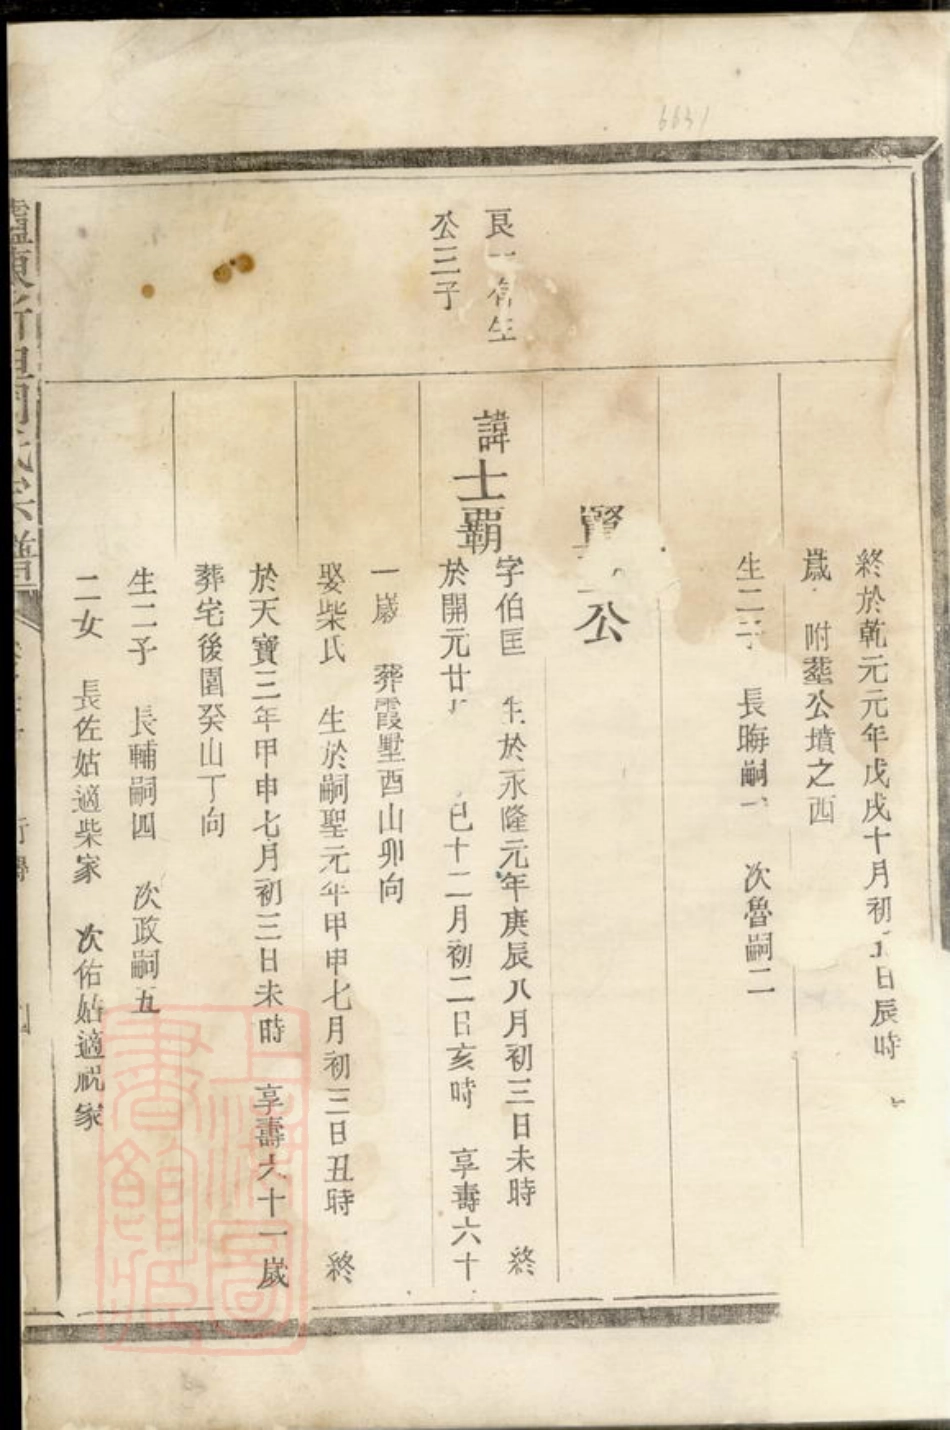 6631
終於乾元元年戊戌十月初 日辰時
歲 附塟公墳之西
生二子 長晦嗣一 次魯嗣二
賢 公
良一 生
公三子
諱士覇
字伯匡 生於永隆元年庚辰八月初三日未時 終
於開元廿 巳十二月初二日亥時 享壽六十
一歲 葬霞墅酉山卯向
娶柴氏 生於嗣聖元年甲申七月初三日丑時 終
於天寶三年甲申七月初三日未時 享壽六十一歲
葬宅後園癸山丁向
生二子 長輔嗣四 次政嗣五
二女 長佐姑適柴家 次佑姑適祝家
氏宗譜
上海圖書館藏